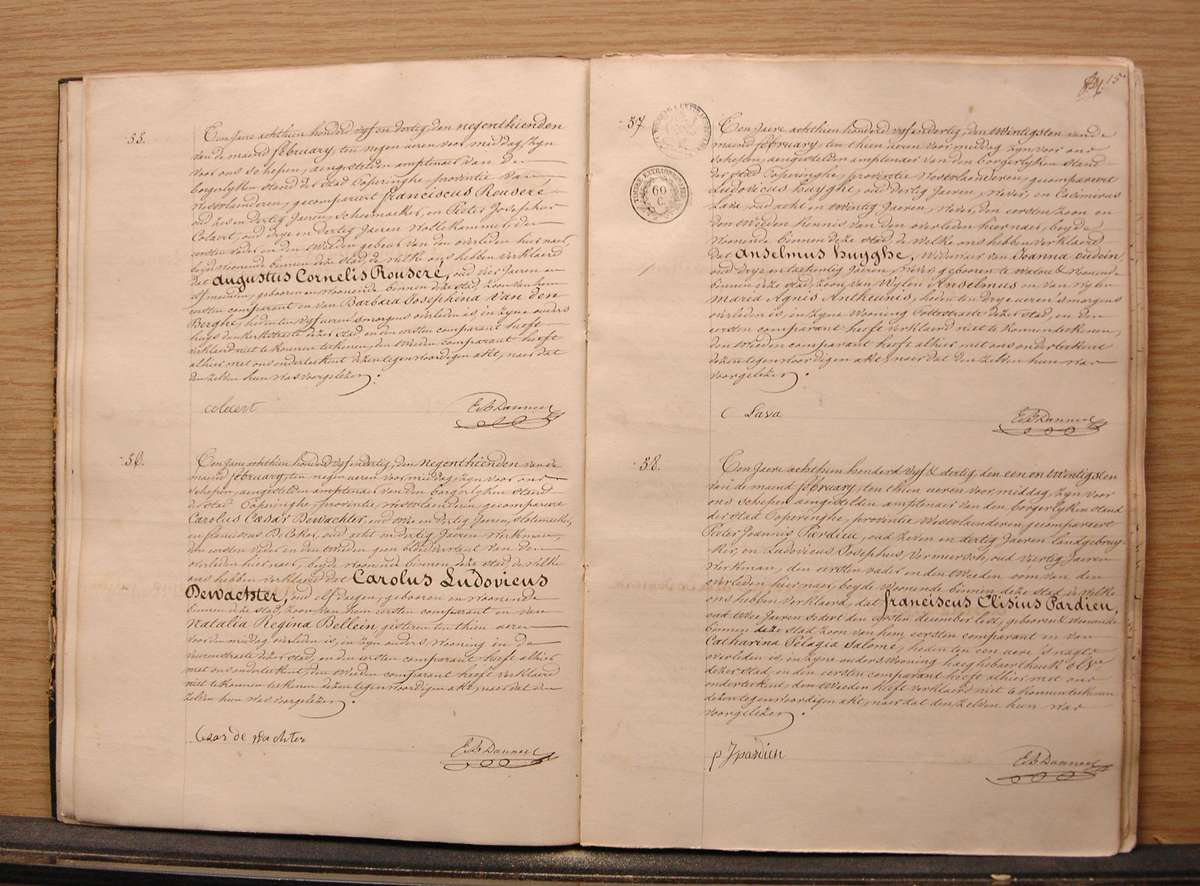 55.
Ten Jare achthien honderd vyf en dertig, den negenthienden
van de maend february, ten negen uren voor middag, zyn
voor ons schepen, aengestelden amptenaer van den
borgerlyken stand der stad Poperinghe, provintie van
Westvlanderen, gecompareert Franciscus Rouseré
oud zes en dertig Jaeren, schoenmaeker, en Pieter Josephus
Colaert, oud dry en dertig Jaeren Wollekammer, den
eersten vader en den tweeden gebuer van den overleden hier naer,
beyde woonende binnen deze stad, de welke ons hebben verklaerd
dat Augustus Cornelis Rouseré, oud vier Jaeren en
elf maenden, geboren en woonende binnen deze stad, zoon van hem
eersten comparant en van Barbara Josephina Van den
Berghe, heden ten vyf uren smorgens overleden is, in zyne ouders
huys deze stad en den eersten comparant heeft
verklaerd niet te konnen teekenen, den tweeden comparant heeft
alhier met ons onderteekent dezen tegenwoordigen akt, naer dat
den zelven hun was voorgelezen.
colaert
56.
Ten Jare achthien honderd vyf en dertig, den negenthienden van de
maend february, ten negen uren voor middag, zyn voor ons
schepen, aengestelden amptenaer van den borgerlyken stand
der stad Poperinghe, provintie Westvlanderen, gecompareert
Carolus Cæsar Dewachter, oud en dertig Jaeren,
en oud acht en dertig Jaeren Werkman,
den eersten vader en den tweeden geen bloedverwant van den
overleden hier naer, beyde woonende binnen deze stad de welke
ons hebben verklaerd dat Carolus Ludovicus
Dewachter, oud elf dagen, geboren en woonende
binnen deze stad, zoon van hem eersten comparant en van
Natalia Regina Bellein, gisteren ten thien uren
voor den middag overleden is, in zyne ouders wooning in de
deze stad, en den eersten comparant heeft alhier
met ons onderteekent, den tweeden comparant heeft verklaerd
niet te konnen teekenen dezen tegenwoordigen akt, naer dat den
zelven hun was voorgelezen.
Cesar de wachter
15
57.
60
C.
Ten Jaere achthien honderd vyf en dertig, den twintigsten van de
maend february, ten thien uren voor middag zyn voor ons
schepen, aengestelden amptenaer van den borgerlyken stand
der stad Poperinghe, provintie Westvlanderen, gecompareert
Ludovicus Huyghe, oud dertig Jaeren, Wever, en Casimirus
Lava, oud acht en twintig Jaeren, Wever, den eersten zoon en
den tweeden kennis van den overleden hier naer, beyde
woonende binnen deze stad, de welke ons hebben verklaerd
dat Anselmus Huyghe, weduwaer van Joanna oudoin
oud dry en tachentig Jaeren, Wever, geboren te Watou & woonende
binnen deze stad, zoon van wylen Anselmus en van wylen
Maria Agnes Antheunis, heden ten drye uren smorgens
overleden is, in zyne wooning deze stad, en den
eersten comparant heeft verklaerd niet te konnen teekenen,
den tweeden comparant heeft alhier met ons onderteekent
dezen tegenwoordigen akt, naer dat den zelven hun was
voorgelezen.
C Lava
58.
Ten Jaere achthien honderd vyf & dertig, den een en twintigsten
van de maend february, ten thien uren voor middag, zyn voor
ons schepen aengestelden amptenaer van den borgerlyken stand
der stad Poperinghe, provintie Westvlanderen gecompareert
Pieter Joannis Pardieu, oud zeven en dertig Jaeren landgebruy-
ker, en Ludovicus Josephus Vermersch, oud veertig Jaeren
Werkman, den eersten vader en den tweeden oom van den
overleden hier naer, beyde woonende binnen deze stad de welke
ons hebben verklaerd, dat Franciscus Elisius Pardieu,
oud twee Jaeren sedert den eersten december lest, geboren & woonende
binnen deze stad zoon van hem eersten comparant en van
Catharina Pelagia Salomé, heden ten een uere s'nagts
overleden is, in zyne ouders wooning
dezer stad, en den eersten comparant heeft alhier met ons
onderteekent, den tweeden heeft verklaerd niet te konnen teekenen
dezen tegenwoordigen akt, naer dat den zelven hun was
voorgelezen.
p J pardieu